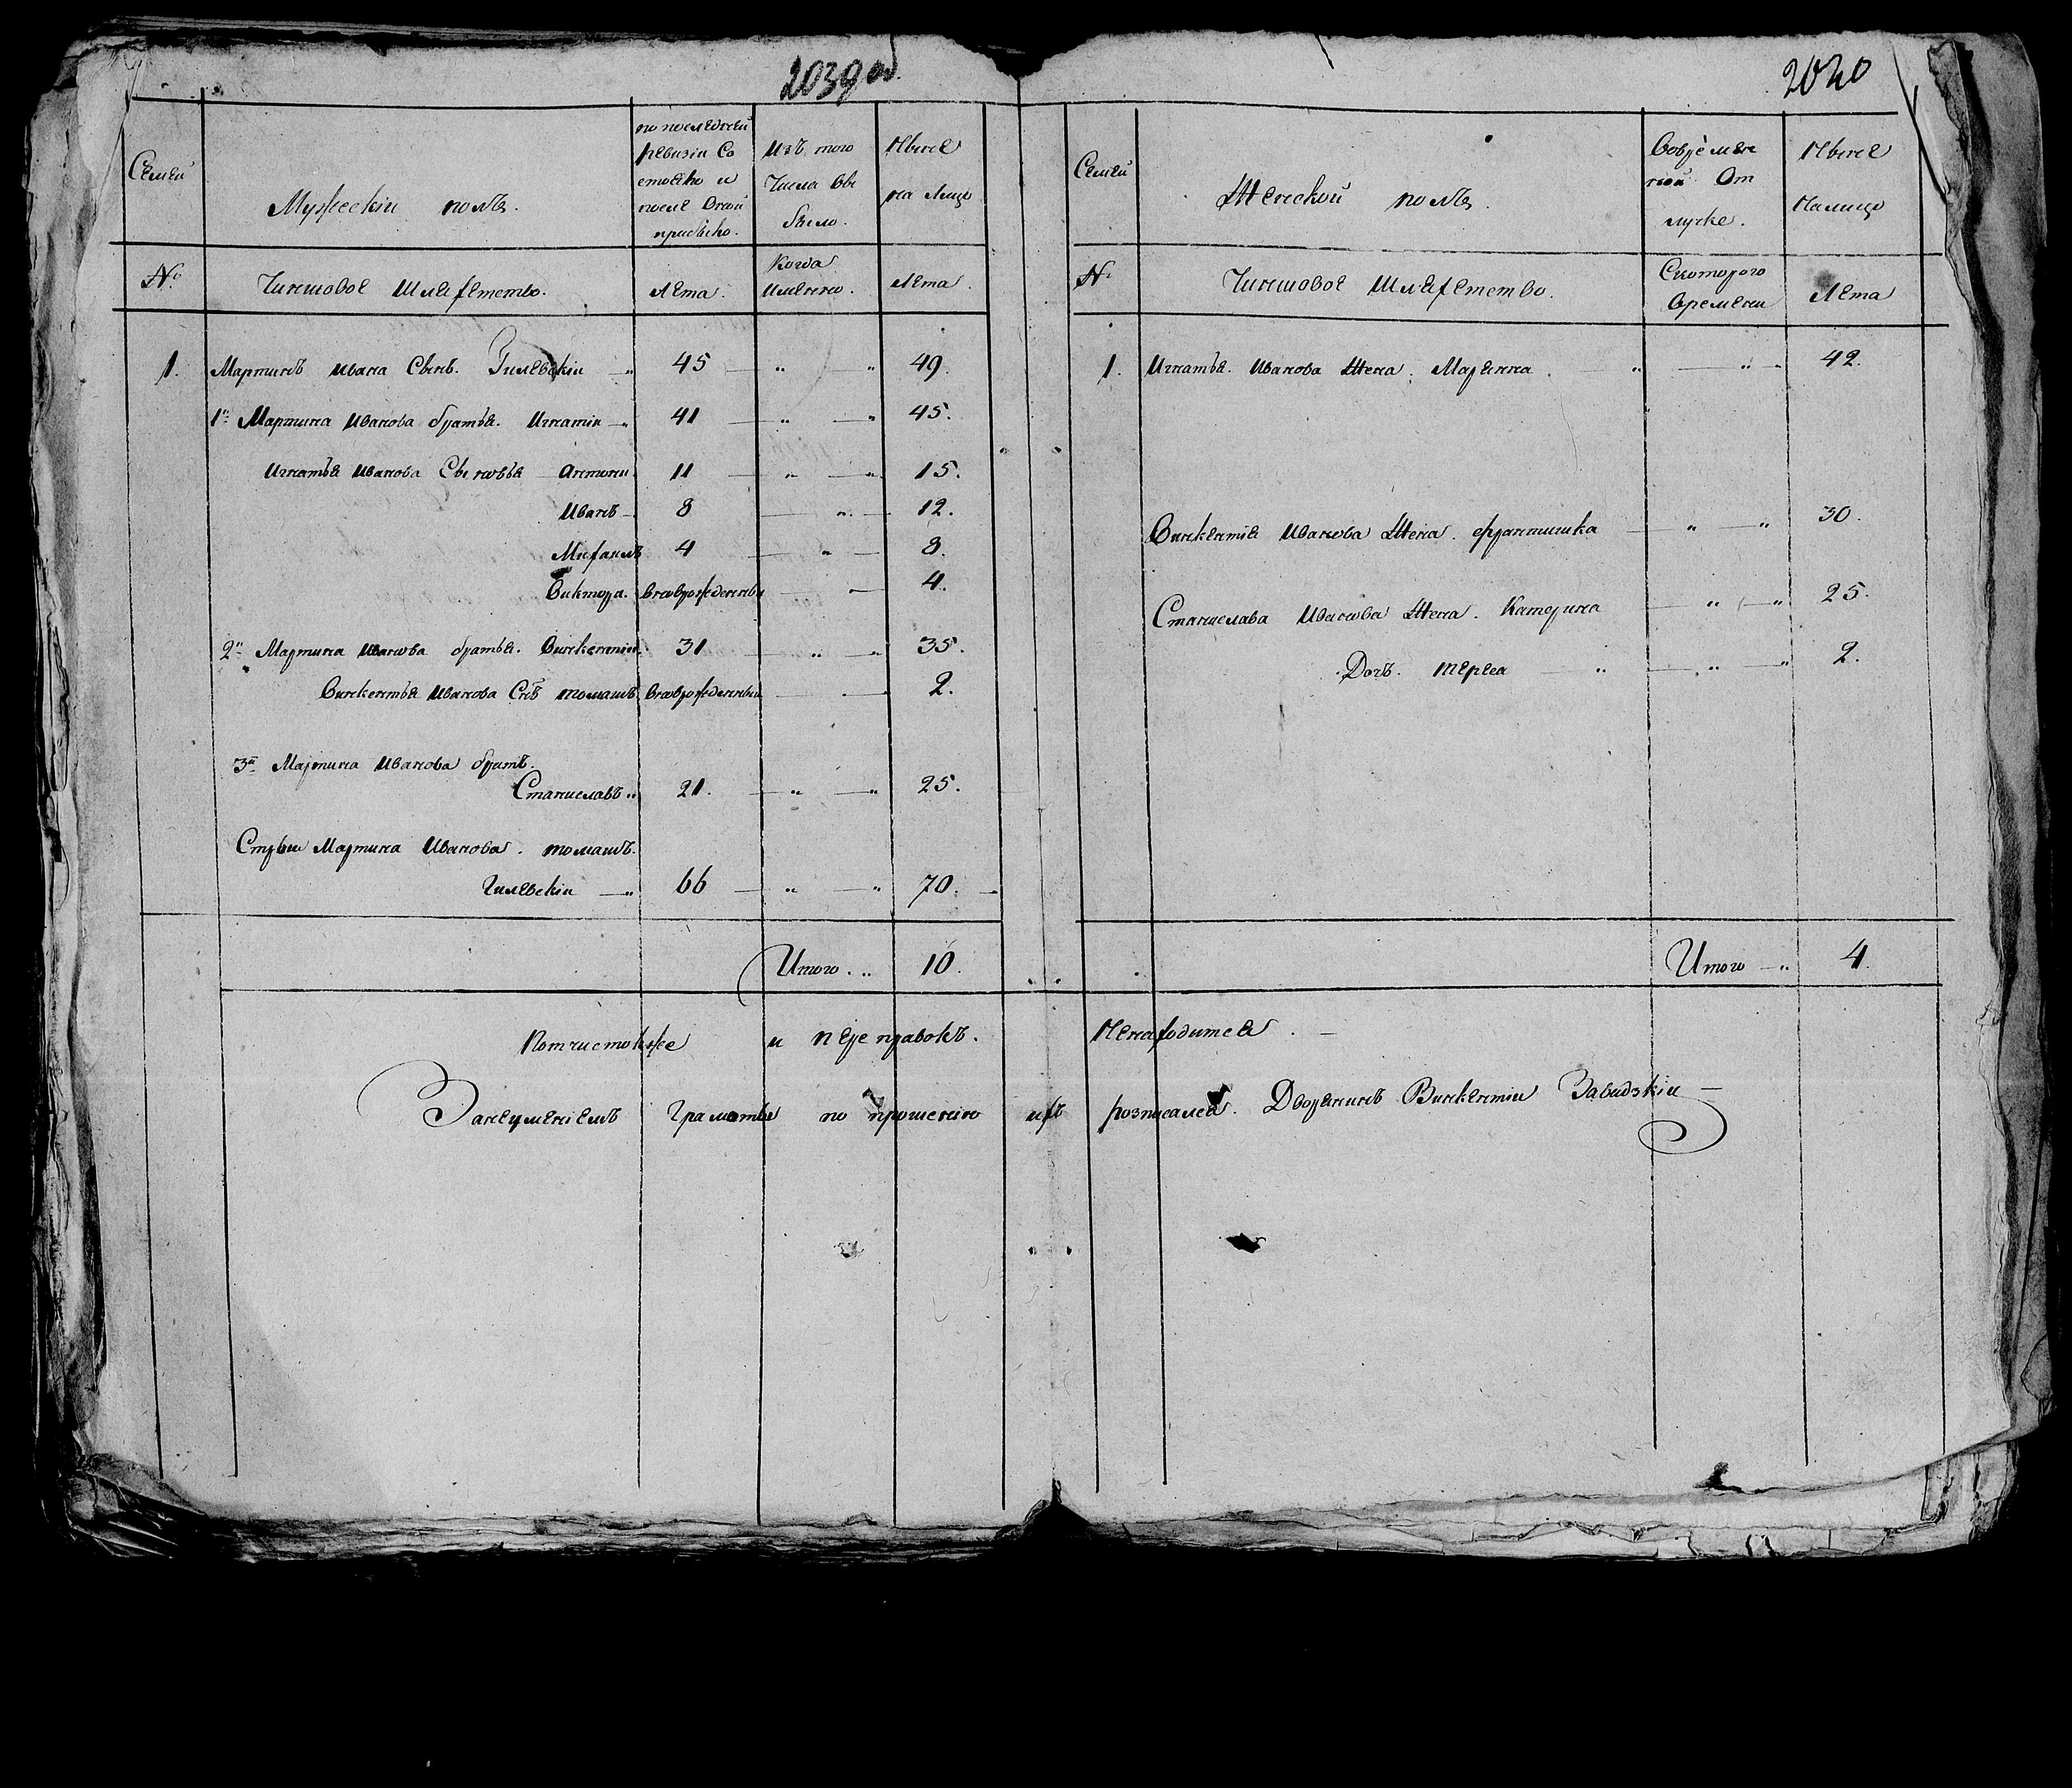 2039 об.
Семьи
Мужескiи полъ.
по последней
ревизiи Со
стояло и
после Оной
прибыло.
Изъ того
Числа Вы
было.
Ныне
на Лицо
№
Чиншовое Шляхетство.
Лета.
Когда
Именно.
Лета.
1. Мартинъ Ивана Сынъ. Гилевскiи — „ 45 — „ — „ 49.
1й Мартина Иванова братъя. Игнатiи — „ 41 — „ — „ 45.
Игнатья Иванова Сыновья Антони. 11 — „ — „ 15.
Иванъ — 8 — „ — 12.
Михаилъ 4 — „ — 8.
Виктора. вноврожденный — — 4.
2й Мартина Иванова братья. Винкентiи. 31 — „ — „ 35.
Винкентья Иванова Снъ томашъ. вноврожденный — — 2.
3й Мартина Иванова братъ.
Станиславъ „ 21. — „ — „ 25.
Стрыи Мартина Иванова. томашъ.
Гилевскiи — „ 66 — „ — „ 70. —
Итого. „ 10.
2040
Семьи
Женской полъ.
Вовремен
ной От
лучке.
Ныне
Налицо
№
Чиншовое Шляхетство.
Скоторого
Времени
Лета
1. Игнатья Иванова Жена. Марянна. „ — „ — 42.
Винкентiя Иванова Жена. франтишка — „ — „ 30.
Станислава Иванова Жена. Катерина — „ — „ 25.
Дочъ. тереса — „ — „ — „ 2.
Итого — „ 4.
Потчистокже и переправокъ. Ненаходится. —
Занеуменiемъ Граматы по прошенiю ихъ розписался. Дворянинъ Винкентiи Завадзкiи —